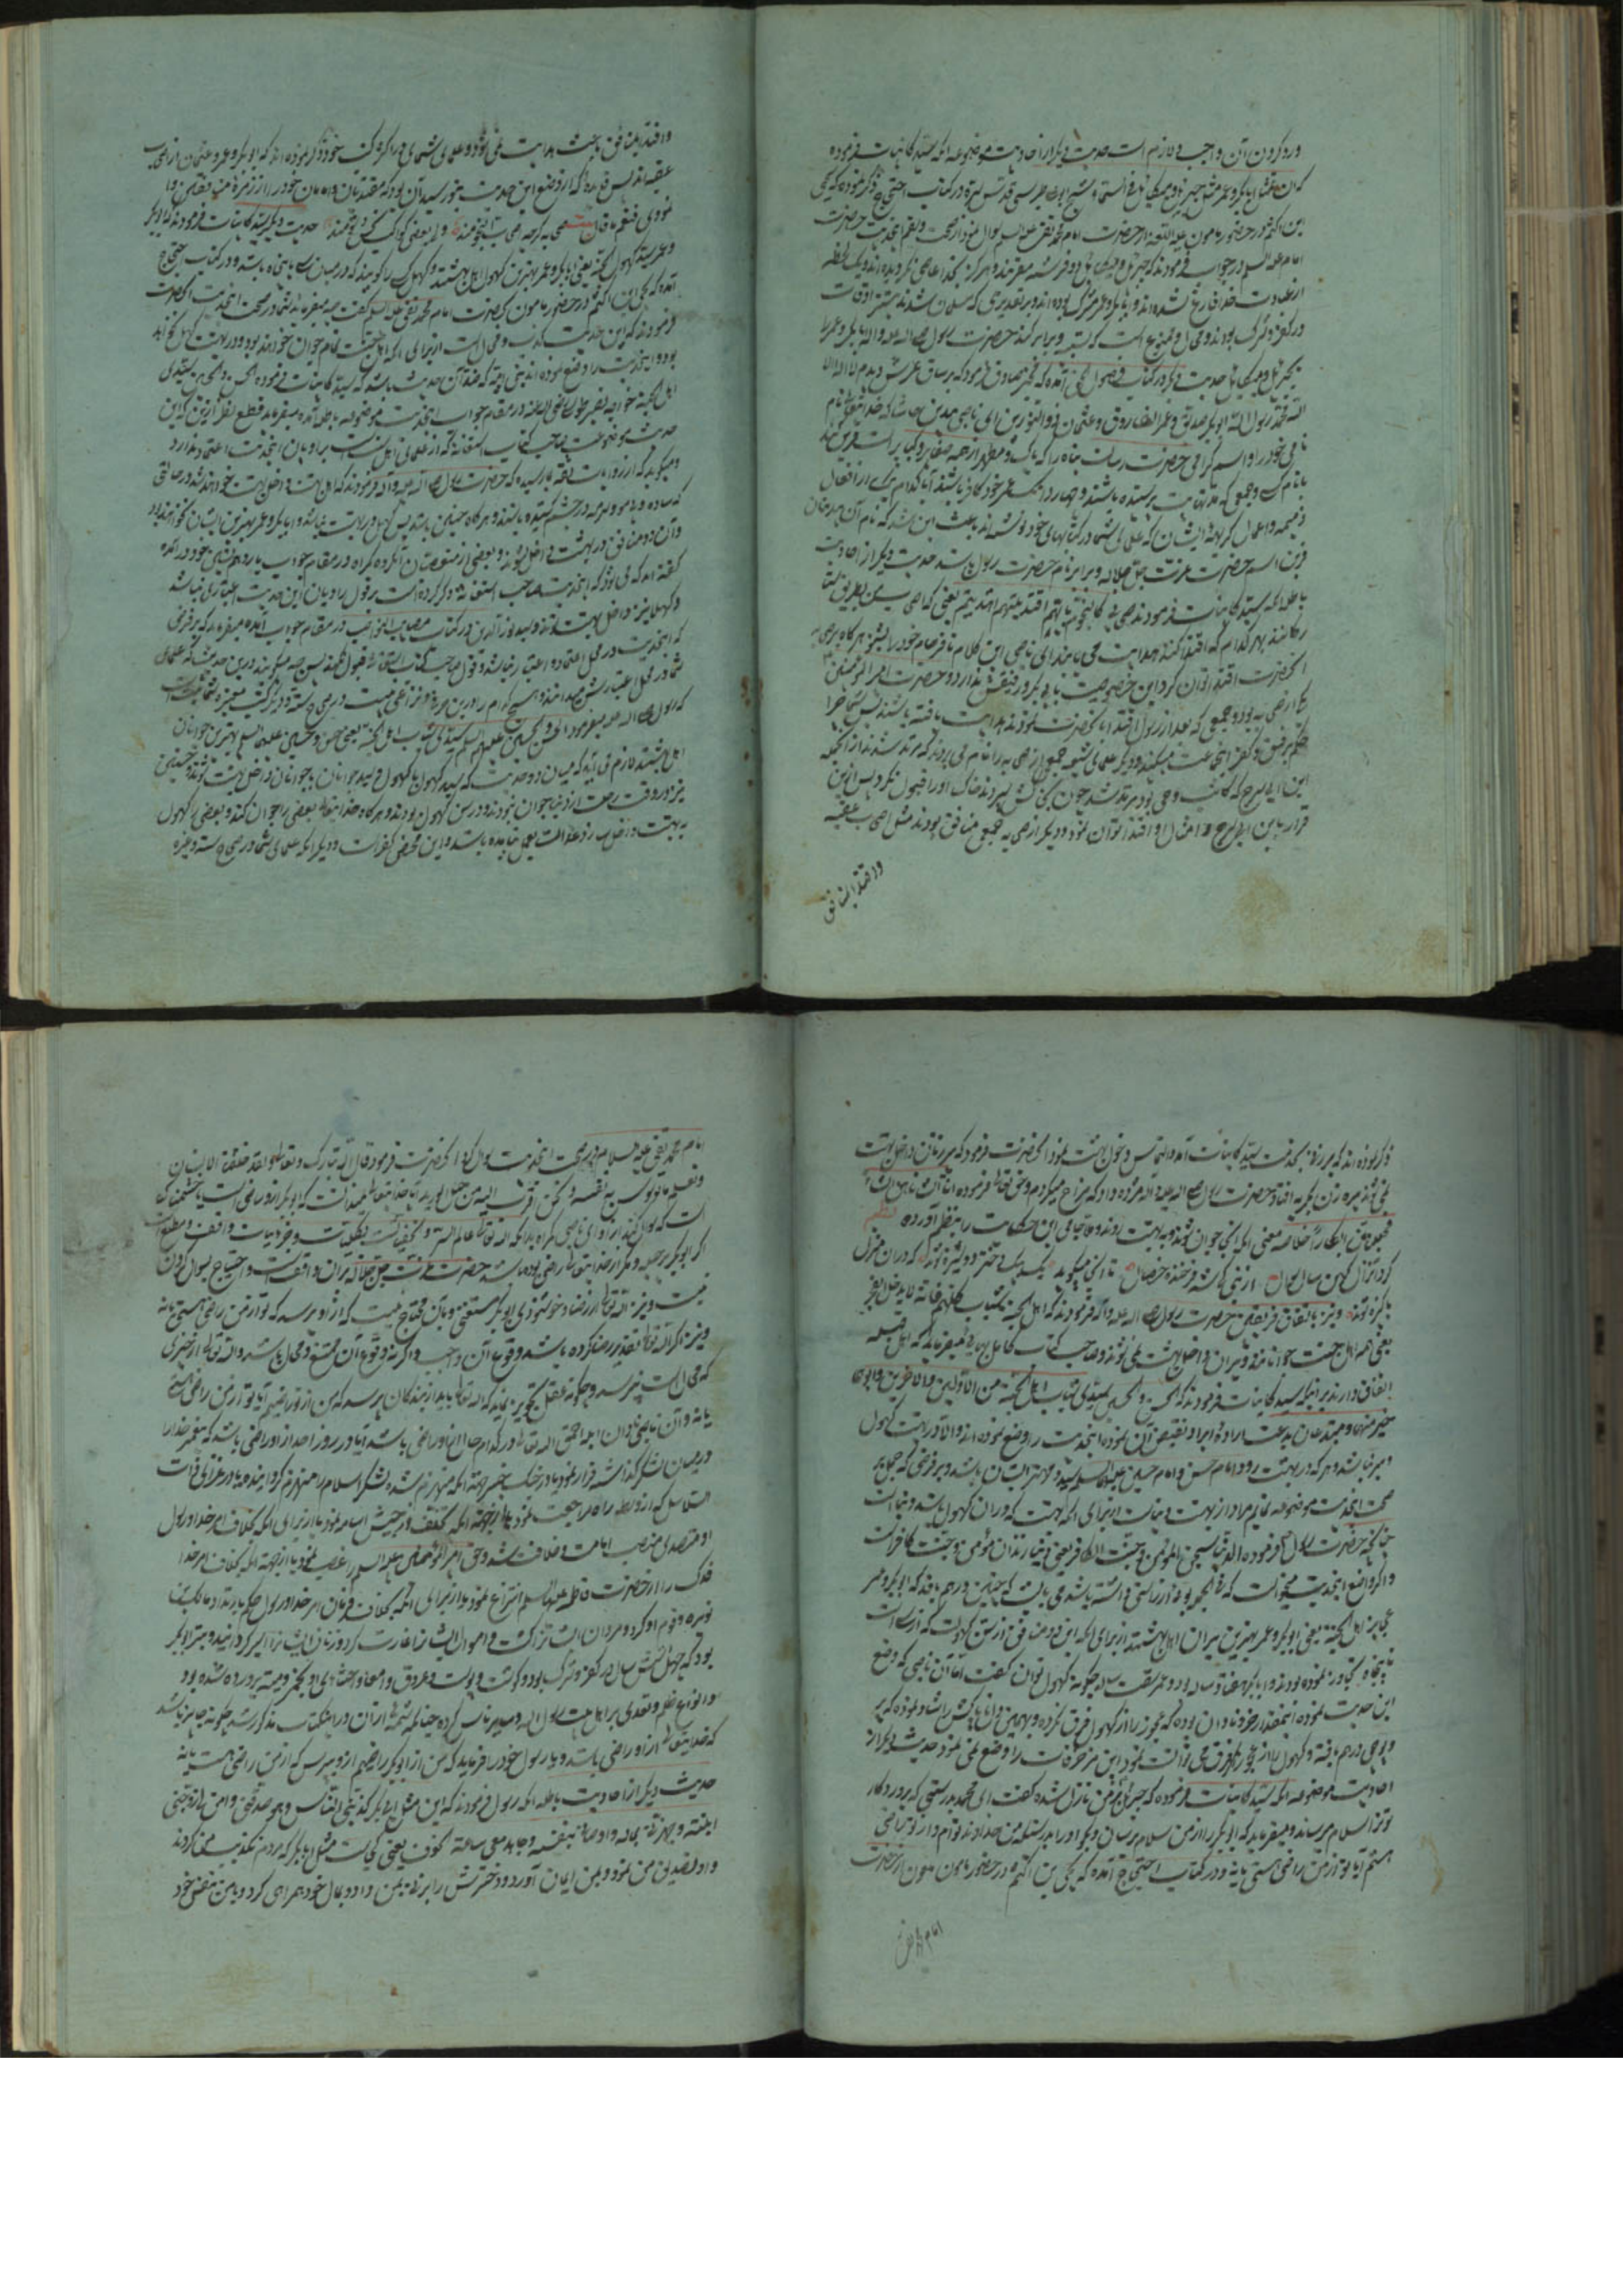 ورد کردن آن واجب و لازم است حدیث دیگر از احادیث موضوعه آنکه سید کاینات فرموده
که ان مثل ابابکر و عمر مثل جبرئیل و میکائیل فی السماء شیخ طبرسی قدس سره در کتاب احتجاج ذکر نموده که یحیی
بن اکثم در حضور مامون علیه اللعنه از حضرت امام محمد تقی علیه السلام سوال نمود از صحت و سقم این حدیث حضرت
امام علیه السلام در جواب فرمودند که جبرئیل و میکائیل دو فرشته مقربند و هرگز بخدا عاصی نگردیده اند و یک لحظه
از عبادت خدا فارغ نشده اند و ابابکر و عمر مشرک بوده اند و بر تقدیری که مسلمان شدند بیشتر اوقات
در کفر و شرک بودند و محال و ممتنع است که تشبیه و برابر کند حضرت رسول صلی الله علیه واله ابابکر و عمر را
بجبرئیل و میکائیل حدیث دیگر در کتاب فصول آمده که مخبر صادق فرمود که بر ساق عرش دیدم لا اله الا
الله محمد رسول الله ابوبکر صدیق و عمر الفاروق و عثمان ذو النورین ای ناصبی بیدین حاشا که خدایتعالی نام
نامی خود را و اسم گرامی حضرت رسالت پناه را که پاک و مطهر از همه صغایر و کبایر است قرین
با نام جمعی که مدتها بت پرستیده باشند و چهار دانگ عمر خود کافر باشند آیا کدام یک از افعال
ذمیمه و اعمال کریهه ایشان که علمای شما در کتابهای خود نوشته اند باعث این شد که نام آن
قرین اسم حضرت عزت جل جلاله و برابر نام حضرت رسول باشد حدیث دیگر از احادیث
باطله آنکه سید کاینات فرمودند اصحابی کالنجوم بایهم اقتدیتم اهتدیتم یعنی که اصحاب من بطریق
ستاره اند بهر کدام که اقتدا کنند هدایت می یابند ای ناصبی این کلام نافرجام خود را بشنو هرگاه بر صحابه
آنحضرت اقتدا توان کرد این خصوصیت با ابی بکر و رفیقش ندارد و حضرت امیر المومنین
نیز از صحابه بود و جمعی که بعد از رسول اقتدا بآنحضرت نمودند هدایت یافته باشند پس شما چرا
حکم برفض و کفر این جماعت میکنید و دیگر علمای شیعه جمعی از صحابه را نام می برند که مرتد شدند از آنجمله
ابن ابی سرح که کاتب وحی بود مرتد شد چون نعش سپردند خاک او را قبول نکرد پس ازین
قرار باین ابی سرح و امثال او اقتدا توان نمود و دیگر از صحابه جمعی منافق بودند مثل اصحاب عقبه
و اقتدا بمنافق
و اقتدا بمنافق باعث هدایت نمی شود و علمای شما در اکثر کتب خود ذکر نموده اند که ابوبکر و عمر و عثمان از اصحاب
عقبه اند پس فایده که از وضع این حدیث بتو رسید آن بود که مقتدایان و امامان خود را از زمره منافقین
حدیث دیگر سید کاینات فرمودند که ابابکر
و عمر سیدا کهول الجنة یعنی ابابکر و عمر بهترین کهول اهل بهشتند و کهل کسی را گویند که در میان سی تا پنجاه باشد و در کتاب احتجاج
آمده که یحیی ابن اکثم در حضور مامون بحضرت امام محمد تقی علیه السلام گفت چه میفرمایید شما در صحت این حدیث آنحضرت
فرمودند که این حدیث کذب و محال است از برای آنکه اهل جنت تمام جوان خواهند بود و در بهشت کهل نخواهد
بود و این حدیث را وضع نموده اند بنی امیه که ضد آن حدیث باشد که سید کاینات فرموده الحسن و الحسین سیدی
اهل الجنة خواجه نصیر طوسی علیه الرحمه در مقام جواب این حدیث موضوعه باطله آمده میفرماید قطع نظر ازین که این
حدیث موضوعست صاحب کتاب استغاثه که از علمای اهل سنت براویان این حدیث اعتماد ندارد
و میگوید که از روایات ثقه بما رسیده که حضرت رسول صلی الله علیه واله فرمودند که اهل بهشت داخل بهشت خواهند شد در حالتی
که ساده و بی مو و سرمه در چشم کشیده باشند و هرگاه چنین باشد پس کهل در بهشت نباشد و ابابکر و عمر بهترین ایشان نخواهند بود
و آن دو منافق در بهشت داخل نشوند و بعضی از متعصبان آن گروه گمراه در مقام جواب باز درهم بافی خود در آمده
گفته اند که می شود که این حدیث صاحب استغاثه ذکر کرده است بر قول راویان این حدیث اعتباری نباشد
و کهلها نیز داخل بهشت شوند و سید نور الدین در کتاب مصایب النواصب در مقام جواب آمده میفرماید که بر فرضی
که این حدیث در محل اعتماد و اعتبار نباشد و قول صاحب کتاب استغاثه قبول نکنند پس چه میگویند درین حدیث که علمای
شما در محل اعتبارش میدانند و هیچ کدام را درین حرف و نزاعی نیست در صحاح سته و دیگر کتب معتبره شما ثابت است
که رسول صلی الله علیه واله میفرمود الحسن و الحسین علیهما السلام سیدی شباب اهل الجنة یعنی حسن و حسین علیهما السلام بهترین جوانان
اهل بهشتند لازم می آید که میان دو حدیث که سید کهول با کهول و سید جوانان با جوانان داخل بهشت شوند و حسنین
نیز در وقت رحلت از دنیا جوان نبودند و در سن کهول بودند و هرگاه خدایتعالی بعضی را جوان کند و بعضی را کهول
به بهشت داخل سازد عدالت بعمل نیامده باشد و این محض کفرست و دیگر آنکه علمای شما در صحاح سته و غیره
ذکر نموده اند که پیرزنی بخدمت سید کاینات آمد و التماس دخول بهشت نمود آنحضرت فرمود که پیرزنان داخل بهشت
نمی شوند پیره زن بگریه افتاد حضرت رسول صلی الله علیه واله او را مژده داد که مزاح میکردم و حق تعالی فرموده انا انشأناهن انشاء
فجعلناهن ابکارا خلاصه معنی آنکه ایشان جوان شوند و به بهشت روند و ملا جامی این حکایت را بنظم آورده نظم
کرد آنزال کهن سال سوال از نبی کای شه فرخنده خصال تا آنجا که میگوید یک بیک دختر دوشیزه شوند که در آن منزل
پاکیزه شوند و نیز باتفاق فریقین حضرت رسول صلی الله علیه واله فرمودند که اهل الجنة شباب کلهم فانه لا یدخل العجز
یعنی همه اهل جنت جوانانند و پیران داخل بهشت نمی شوند و صاحب کتاب کامل بهایی میفرماید که اهل قبله
اتفاق دارند بر اینکه سید کاینات فرمودند که الحسن و الحسین سیدی شباب اهل الجنة من الاولین و الاخرین و ابوهما
خیر منهما و مبتدعان بدعت اراده ایراد نقیض آن نموده این حدیث را وضع نموده اند و الا در بهشت کهول
و پیر نباشد و هر که در بهشت رود امام حسن و امام حسین علیهما السلام سید و مهتر ایشان باشد و بر فرضی که حمل بر
صحت این حدیث موضوعه نماییم مراد از بهشت دنیاست از برای آنکه بهشت که در آن کهول باشد دنیاست
چنانچه حضرت رسول فرموده الدنیا سجن المؤمن و جنة الکافر یعنی دنیا زندان مؤمن و جنت کافرانست
و اگر واضع این حدیث میخواست که فی الجمله بوی از راستی داشته باشد می بایست که چنین درهم بافد که ابوبکر و عمر
عجایز اهل الجنة یعنی ابوبکر و عمر بهترین پیران اهل بهشتند از برای آنکه این دو منافق از سن کهولت که از سی است
تا پنجاه تجاوز نموده بودند و ابابکر هفتاد ساله بود و عمر شصت ساله چگونه کهول توان گفت اما آن ناصبی که وضع
این حدیث نموده آنمقدار خر و نادان بوده که عجوز را از کهول فرق نکرده و بهمین زبان ناپاکش راشاد نموده که بر
و بوهی درهم بافته و کهول را از عجوز فرق نمی توانست نمود این مزخرفات را وضع نمی نمود حدیث دیگر از
احادیث موضوعه آنکه سید کاینات فرموده که جبرئیل بر من نازل شده گفت ای محمد بدرستی که پروردگار
تو ترا سلام میرساند و میفرماید که ابوبکر را از من سلام برسان و بگو او را بدرستیکه من خداوند توام و از تو راضی
هستم آیا تو از من راضی هستی یا نه و در کتاب احتجاج آمده که یحیی بن اکثم در حضور مامون ملعون از حضرت
امام محمد تقی
امام محمد تقی علیه السلام در صحت این حدیث سوال کرد آنحضرت فرمود قال الله تبارک و تعالی و لقد خلقنا الانسان
و نعلم ما توسوس به نفسه و نحن اقرب الیه من حبل الورید آیا خدایتعالی نمیدانست که ابوبکر از و راضی است یا خشمناک
است که سوال کند از او ای ناصبی گمراه بدانکه الله تعالی عالم السر و الخفیات بکلیات و جزئیات واقف و مطلعست
اگر ابوبکر بر حیله و مکر از خدایتعالی راضی بوده باشد حضرت عزت جل جلاله بر آن واقفست و احتیاج بسوال کردن
نیست و نیز الله تعالی از رضا و خوشنودی ابوبکر مستغنی و بآن محتاج نیست که از او پرسد که تو از من راضی هستی یا نه
و نیز اگر الله تعالی تقدیر رضا کرده باشد وقوع آن واجب و اگر نه وقوع آن ممتنع و محال باشد و الله تعالی از چیزی
که محال است نپرسد و چگونه عقل تجویز نماید که الله تعالی باید از بندگان پرسد که من از تو راضیم آیا تو از من راضی هستی
یا نه و آن ناصبی نادان ابله احمق الله تعالی در کدام حال از او راضی باشد آیا در روز احد از او راضی باشد که پیغمبر خدا را
در میان لشکر گذاشته فرار نمود یا در جنگ خیبر بجهة آنکه منهزم شده لشکر اسلام را منهزم گردانیده یا در غزای ذات
السلاسل که از وسط راه مراجعت نمود یا از جهة آنکه تخلف از جیش اسامه نمود یا از برای آنکه بخلاف امر خدا و رسول
او متصدی منصب امامت و خلافت شد و حق امیر المؤمنین علیه السلام را غصب نمود یا از جهة آنکه بخلاف امر خدا
فدک را از حضرت فاطمه علیها السلام انتزاع نمود یا از برای آنکه بخلاف فرمان امر خدا و رسول حکم بارتداد مالک بن
نویره و قوم او کرد و مردان ایشان را کشت و اموال ایشان را غارت کرد و زنان ایشان را اسیر گردانید و مبتر ابوبکر
بود که چهل شش سال در کفر و شرک بود و گوشت و پوست و عروق و امعا و احشای او بخمر و میته پرورده شده بود
و انواع ظلم و تعدی بر اهل بیت رسول الله و سایر ناس کرده چنانکه شمه از آن در این کتاب مذکور شد چگونه جایز باشد
که خدایتعالی از او راضی باشد و با رسول خود را فرماید که من از ابوبکر راضیم از و بپرس که از من راضی هست یا نه
حدیث دیگر از احادیث باطله آنکه رسول فرمودند که این مثل ابابکر کذبنی الناس و هو صدقنی و امن بی و زوجنی
ابنته و جهزنی بماله و اوسانی بنفسه و جاهد معی ساعة الخوف یعنی کجاست مثل ابابکر که مردم تکذیب من کردند
و او تصدیق من نمود و بمن ایمان آورد و دخترش را بزنی بمن داد و بمال خود همراهی کرد و با من بنفس خود